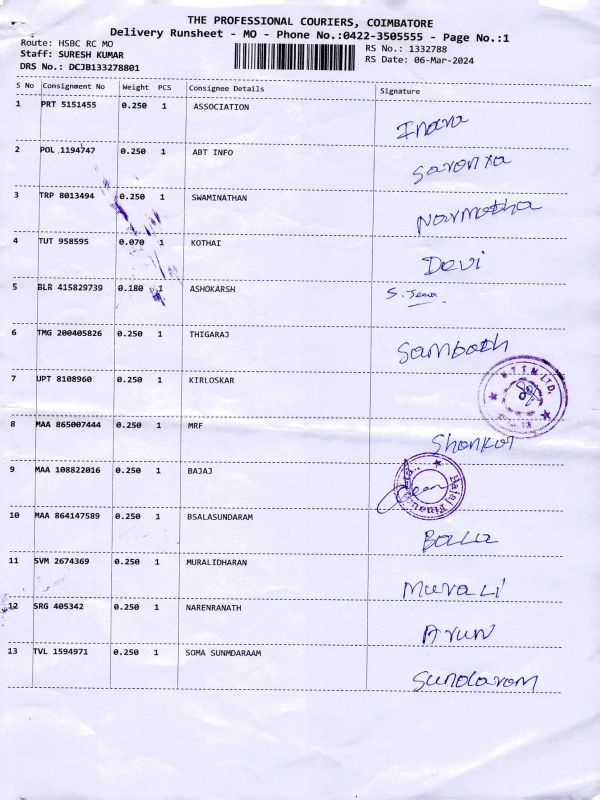 THE PROFESSIONAL COURIERS, COIMBATORE
Delivery Runsheet - MO - Phone No.:0422-3505555 - Page No.:1
Route: HSBC RC MO
RS No.: 1332788
Staff: SURESH KUMAR
RS Date: 06-Mar-2024
DRS No.: DCJB133278801
S No Consignment No Weight PCS Consignee Details Signature
1 PRT 5151455 0.250 1 ASSOCIATION
2 POL 1194747 0.250 1 ABT INFO
3 TRP 8013494 0.250 1 SWAMINATHAN
4 TUT 958595 0.070 1 KOTHAI Devi
5 BLR 415829739 0.180 1 ASHOKARSH
6 TMG 200405826 0.250 1 THIGARAJ Sambath
7 UPT 8108960 0.250 1 KIRLOSKAR
8 MAA 865007444 0.250 1 MRF Shankar
9 MAA 108822016 0.250 1 BAJAJ
10 MAA 864147589 0.250 1 BSALASUNDARAM Balla
11 SVM 2674369 0.250 1 MURALIDHARAN Murali
12 SRG 405342 0.250 1 NARENRANATH Arun
13 TVL 1594971 0.250 1 SOMA SUNMDARAAM Sundaram